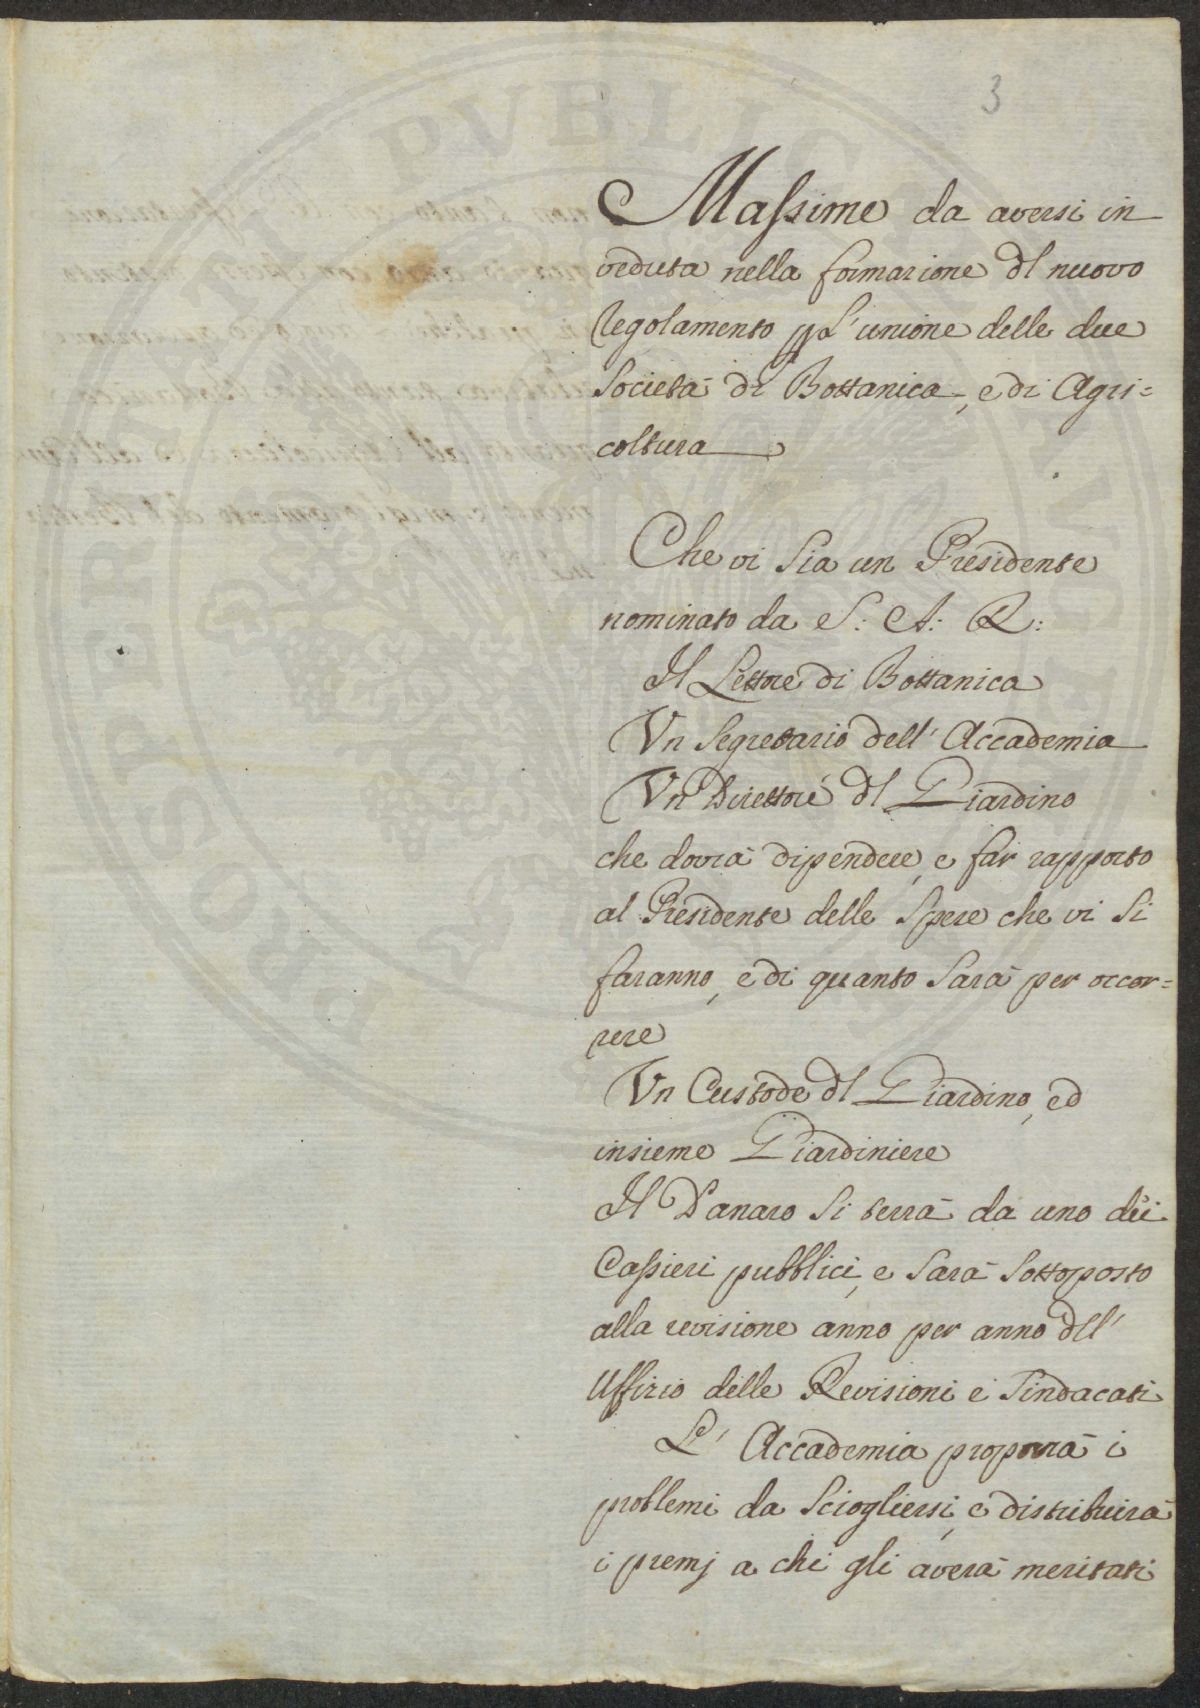 3
Massime da aversi in
veduta nella formazione dl nuovo
Regolamento p L'unione delle due
Società di Bottanica, e di Agri=
coltura
Che vi sia un Presidente
nominato da S: A: R:
Il Lettore di Bottanica
Vn Segretario dell' Accademia
Vn Direttore dl Giardino
che dovrà dipendere, e far rapporto
al Presidente delle Spese che vi si
faranno, e di quanto sarà per occor=
rere
Vn Custode dl Giardino, ed
insieme Giardiniere
Il Danaro si terrà da uno dei
Cassieri pubblici, e sarà sottoposto
alla revisione anno per anno dll'
Uffizio delle Revisioni e Sindacati
L' Accademia proporrà i
problemi da sciogliersi, e distribuirà
i premj a chi gli averà meritati